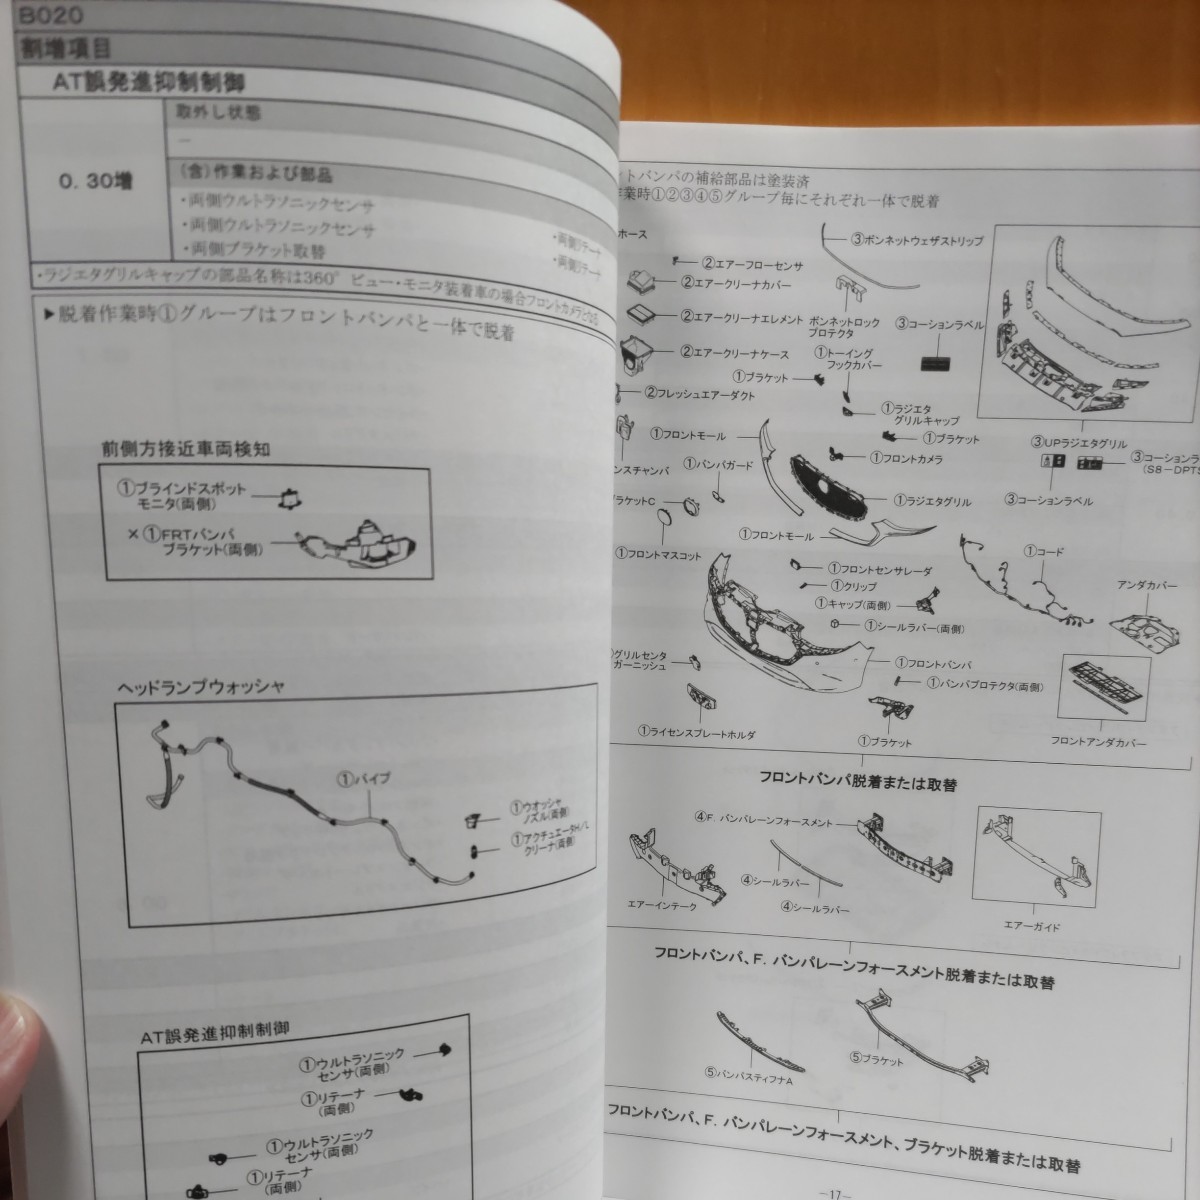 B020
割増項目
AT誤発進抑制制御
取外し状態
－
0. 30増
(含)作業および部品
・両側ウルトラソニックセンサ
・両側リテーナ
・両側ウルトラソニックセンサ
・両側リテーナ
・両側ブラケット取替
・ラジエタグリルキャップの部品名称は360°ビュー・モニタ装着車の場合フロントカメラとなる
▶脱着作業時①グループはフロントバンパと一体で脱着
前側方接近車両検知
①ブラインドスポット
モニタ(両側)
×①FRTバンパ
ブラケット(両側)
ヘッドランプウォッシャ
①パイプ
①ウオッシャ
ノズル(両側)
①アクチュエータH/L
クリーナ(両側)
AT誤発進抑制制御
①ウルトラソニック
センサ(両側)
①リテーナ
(両側)
①ウルトラソニック
センサ(両側)
①リテーナ
(両側)
ントバンパの補給部品は塗装済
作業時①②③④⑤グループ毎にそれぞれ一体で脱着
ホース
③ボンネットウェザストリップ
②エアーフローセンサ
②エアークリーナカバー
②エアークリーナエレメント
ボンネットロック
プロテクタ
③コーションラベル
②エアークリーナケース
①トーイング
フックカバー
①ブラケット
②フレッシュエアーダクト
①ラジエタ
グリルキャップ
①フロントモール
①ブラケット
③UPラジエタグリル
①フロントカメラ
③コーションラ
(S8－DPTS
ンスチャンバ
①バンパガード
ブラケットC
①ラジエタグリル
③コーションラベル
①フロントモール
①フロントマスコット
①コード
①フロントセンサレーダ
①クリップ
アンダカバー
①キャップ(両側)
①シールラバー(両側)
グリルセンタ
ガーニッシュ
①フロントバンパ
①バンパプロテクタ(両側)
①ライセンスプレートホルダ
①ブラケット
フロントアンダカバー
フロントバンパ脱着または取替
④F. バンパレーンフォースメント
④シールラバー
エアーインテーク
④シールラバー
エアーガイド
フロントバンパ、F. バンパレーンフォースメント脱着または取替
⑤ブラケット
⑤バンパスティフナA
フロントバンパ、F. バンパレーンフォースメント、ブラケット脱着または取替
－17－